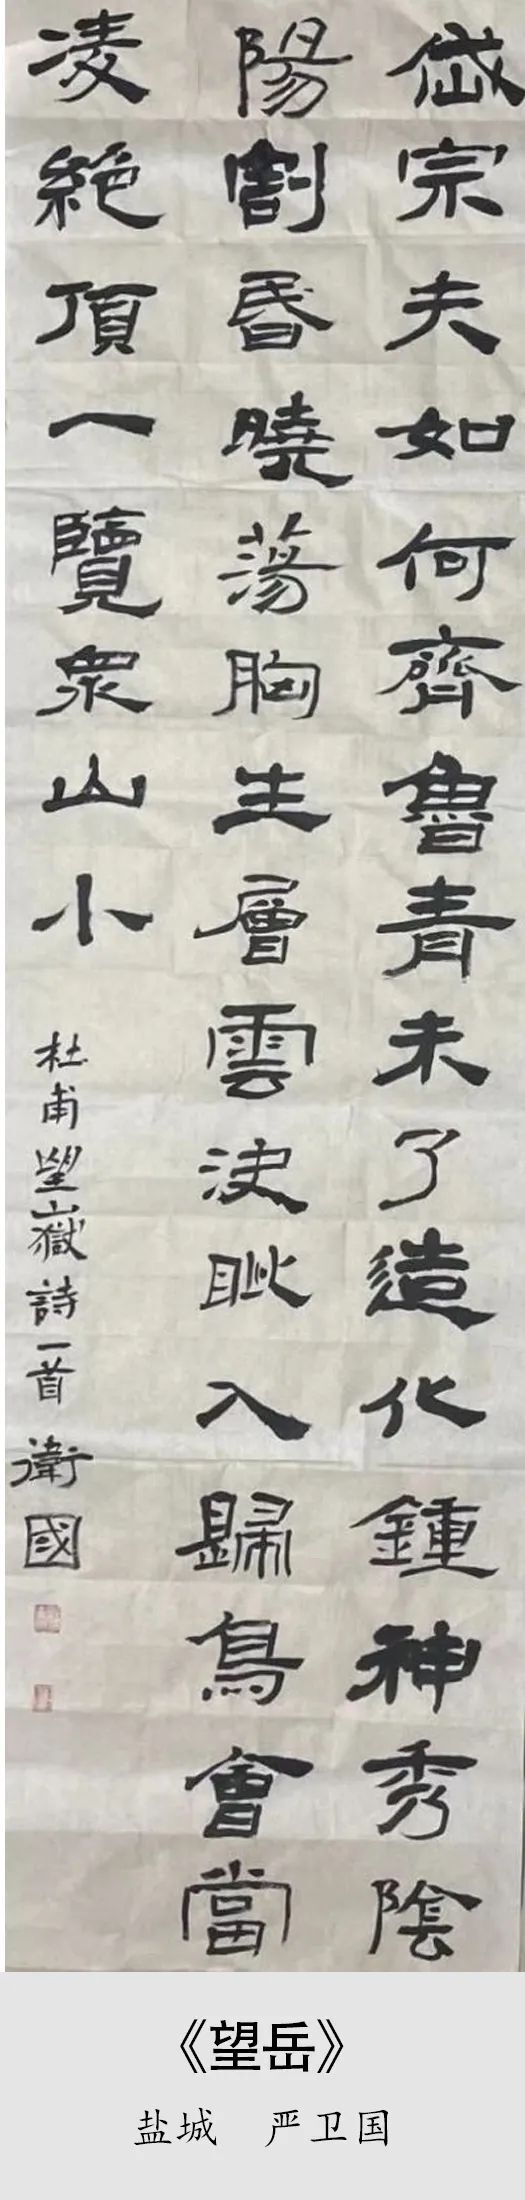 岱宗夫如何齊魯青未了造化鍾神秀陰
陽割昏曉蕩胸生層雲決眦入歸鳥會當
凌絕頂一覽眾山小
杜甫望嶽詩一首 衛國
《望岳》
盐城 严卫国